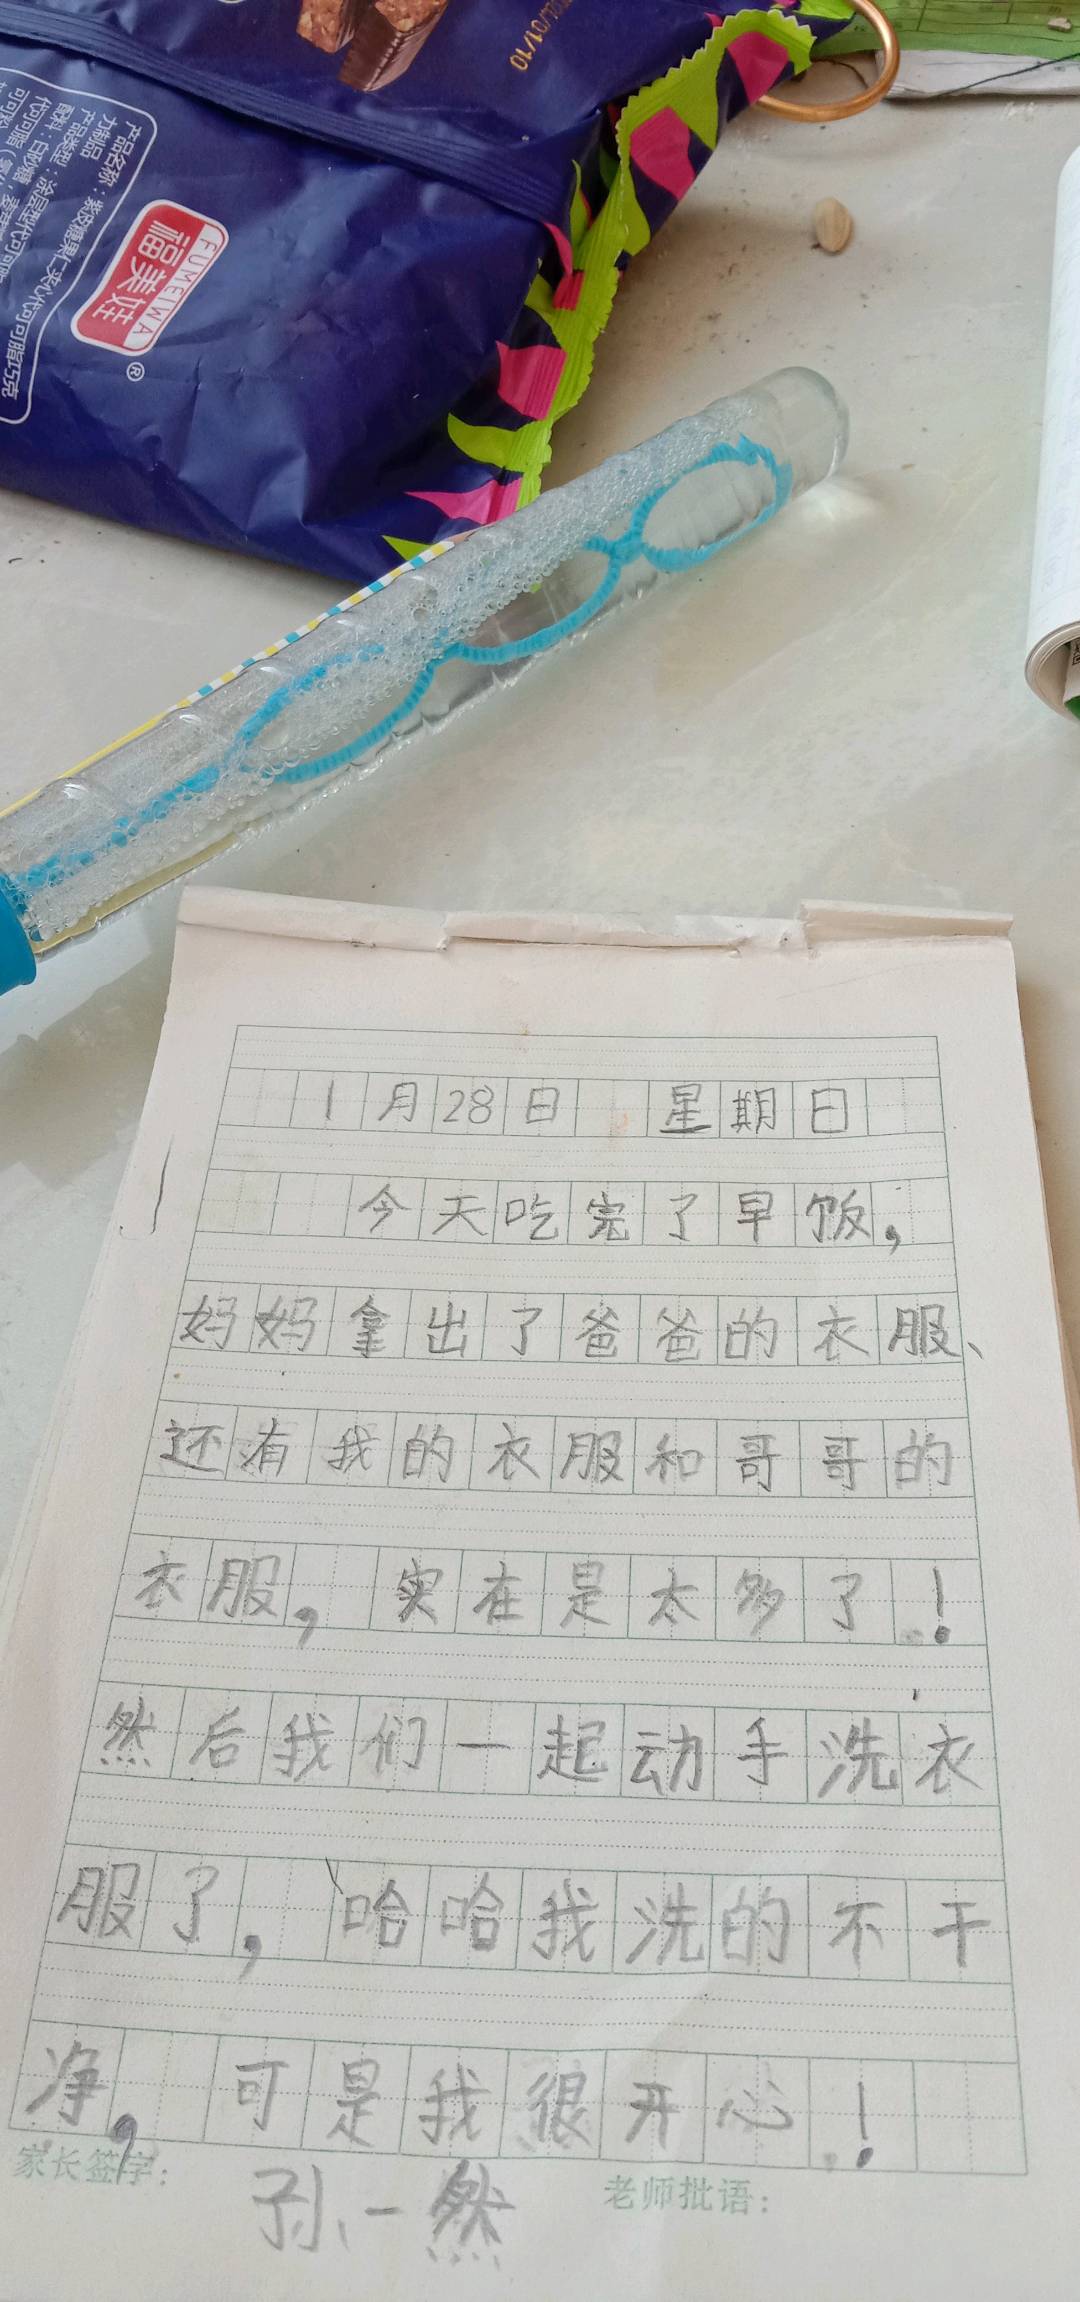 01/10
产品名称：
产品类型：涂层型代可可脂
力制品
FUMEIWA
福美娃
®
1月28日 星期日
今天吃完了早饭，
妈妈拿出了爸爸的衣服、
还有我的衣服和哥哥的
衣服，实在是太多了！
然后我们一起动手洗衣
服了，哈哈我洗的不干
净，可是我很开心！
家长签字：
孙一然
老师批语：